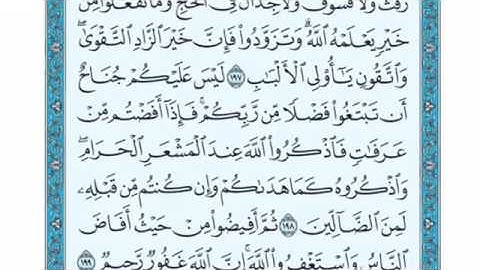 رَفَثَ وَلَا فُسُوقَ وَلَا جِدَالَ فِي ٱلۡحَجِّۗ وَمَا تَفۡعَلُواْ مِنۡ
خَيۡرٖ يَعۡلَمۡهُ ٱللَّهُۗ وَتَزَوَّدُواْ فَإِنَّ خَيۡرَ ٱلزَّادِ ٱلتَّقۡوَىٰۖ
وَٱتَّقُونِ يَٰٓأُوْلِي ٱلۡأَلۡبَٰبِ ١٩٧ لَيۡسَ عَلَيۡكُمۡ جُنَاحٌ
أَن تَبۡتَغُواْ فَضۡلٗا مِّن رَّبِّكُمۡۚ فَإِذَآ أَفَضۡتُم مِّنۡ
عَرَفَٰتٖ فَٱذۡكُرُواْ ٱللَّهَ عِندَ ٱلۡمَشۡعَرِ ٱلۡحَرَامِۖ
وَٱذۡكُرُوهُ كَمَا هَدَىٰكُمۡ وَإِن كُنتُم مِّن قَبۡلِهِۦ
لَمِنَ ٱلضَّآلِّينَ ١٩٨ ثُمَّ أَفِيضُواْ مِنۡ حَيۡثُ أَفَاضَ
ٱلنَّاسُ وَٱسۡتَغۡفِرُواْ ٱللَّهَۚ إِنَّ ٱللَّهَ غَفُورٞ رَّحِيمٞ ١٩٩